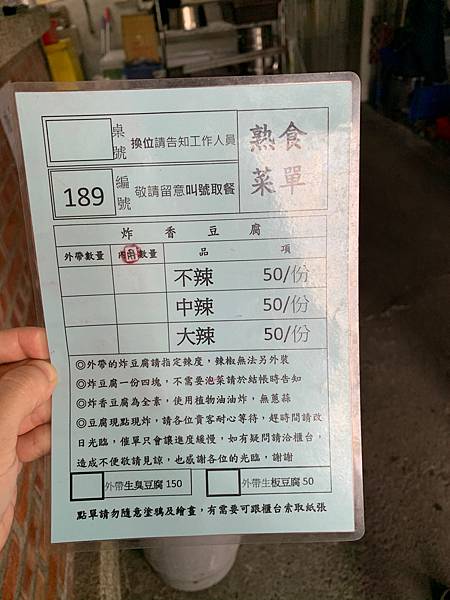 桌號 換位請告知工作人員
熟食菜單
189 編號 敬請留意叫號取餐
炸香豆腐
外帶數量 內用數量 品項
不辣 50/份
中辣 50/份
大辣 50/份
◎外帶的炸豆腐請指定辣度,辣椒無法另外裝
◎炸豆腐一份四塊,不需要泡菜請於結帳時告知
◎炸香豆腐為全素,使用植物油油炸,無蔥蒜
◎豆腐現點現炸,請各位貴客耐心等待,趕時間請改
日光臨,催單只會讓進度緩慢,如有疑問請洽櫃台,
造成不便敬請見諒,也感謝各位的光臨,謝謝
外帶生臭豆腐 150 外帶生板豆腐 50
點單請勿隨意塗鴉及繪畫,有需要可跟櫃台索取紙張